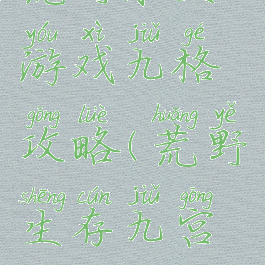 yóu xì jiǔ gé
游戏九格
gōng lüè huāng yě
攻略(荒野
shēng cún jiǔ gōng
生存九宫